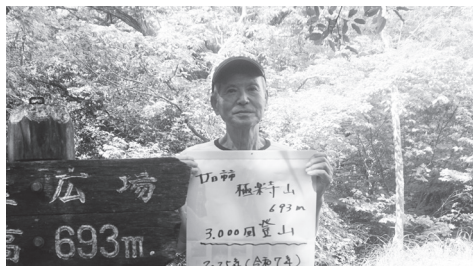 広場
高・693m.
極楽寺山
693m
3,000回登山
2025年(令和7年)